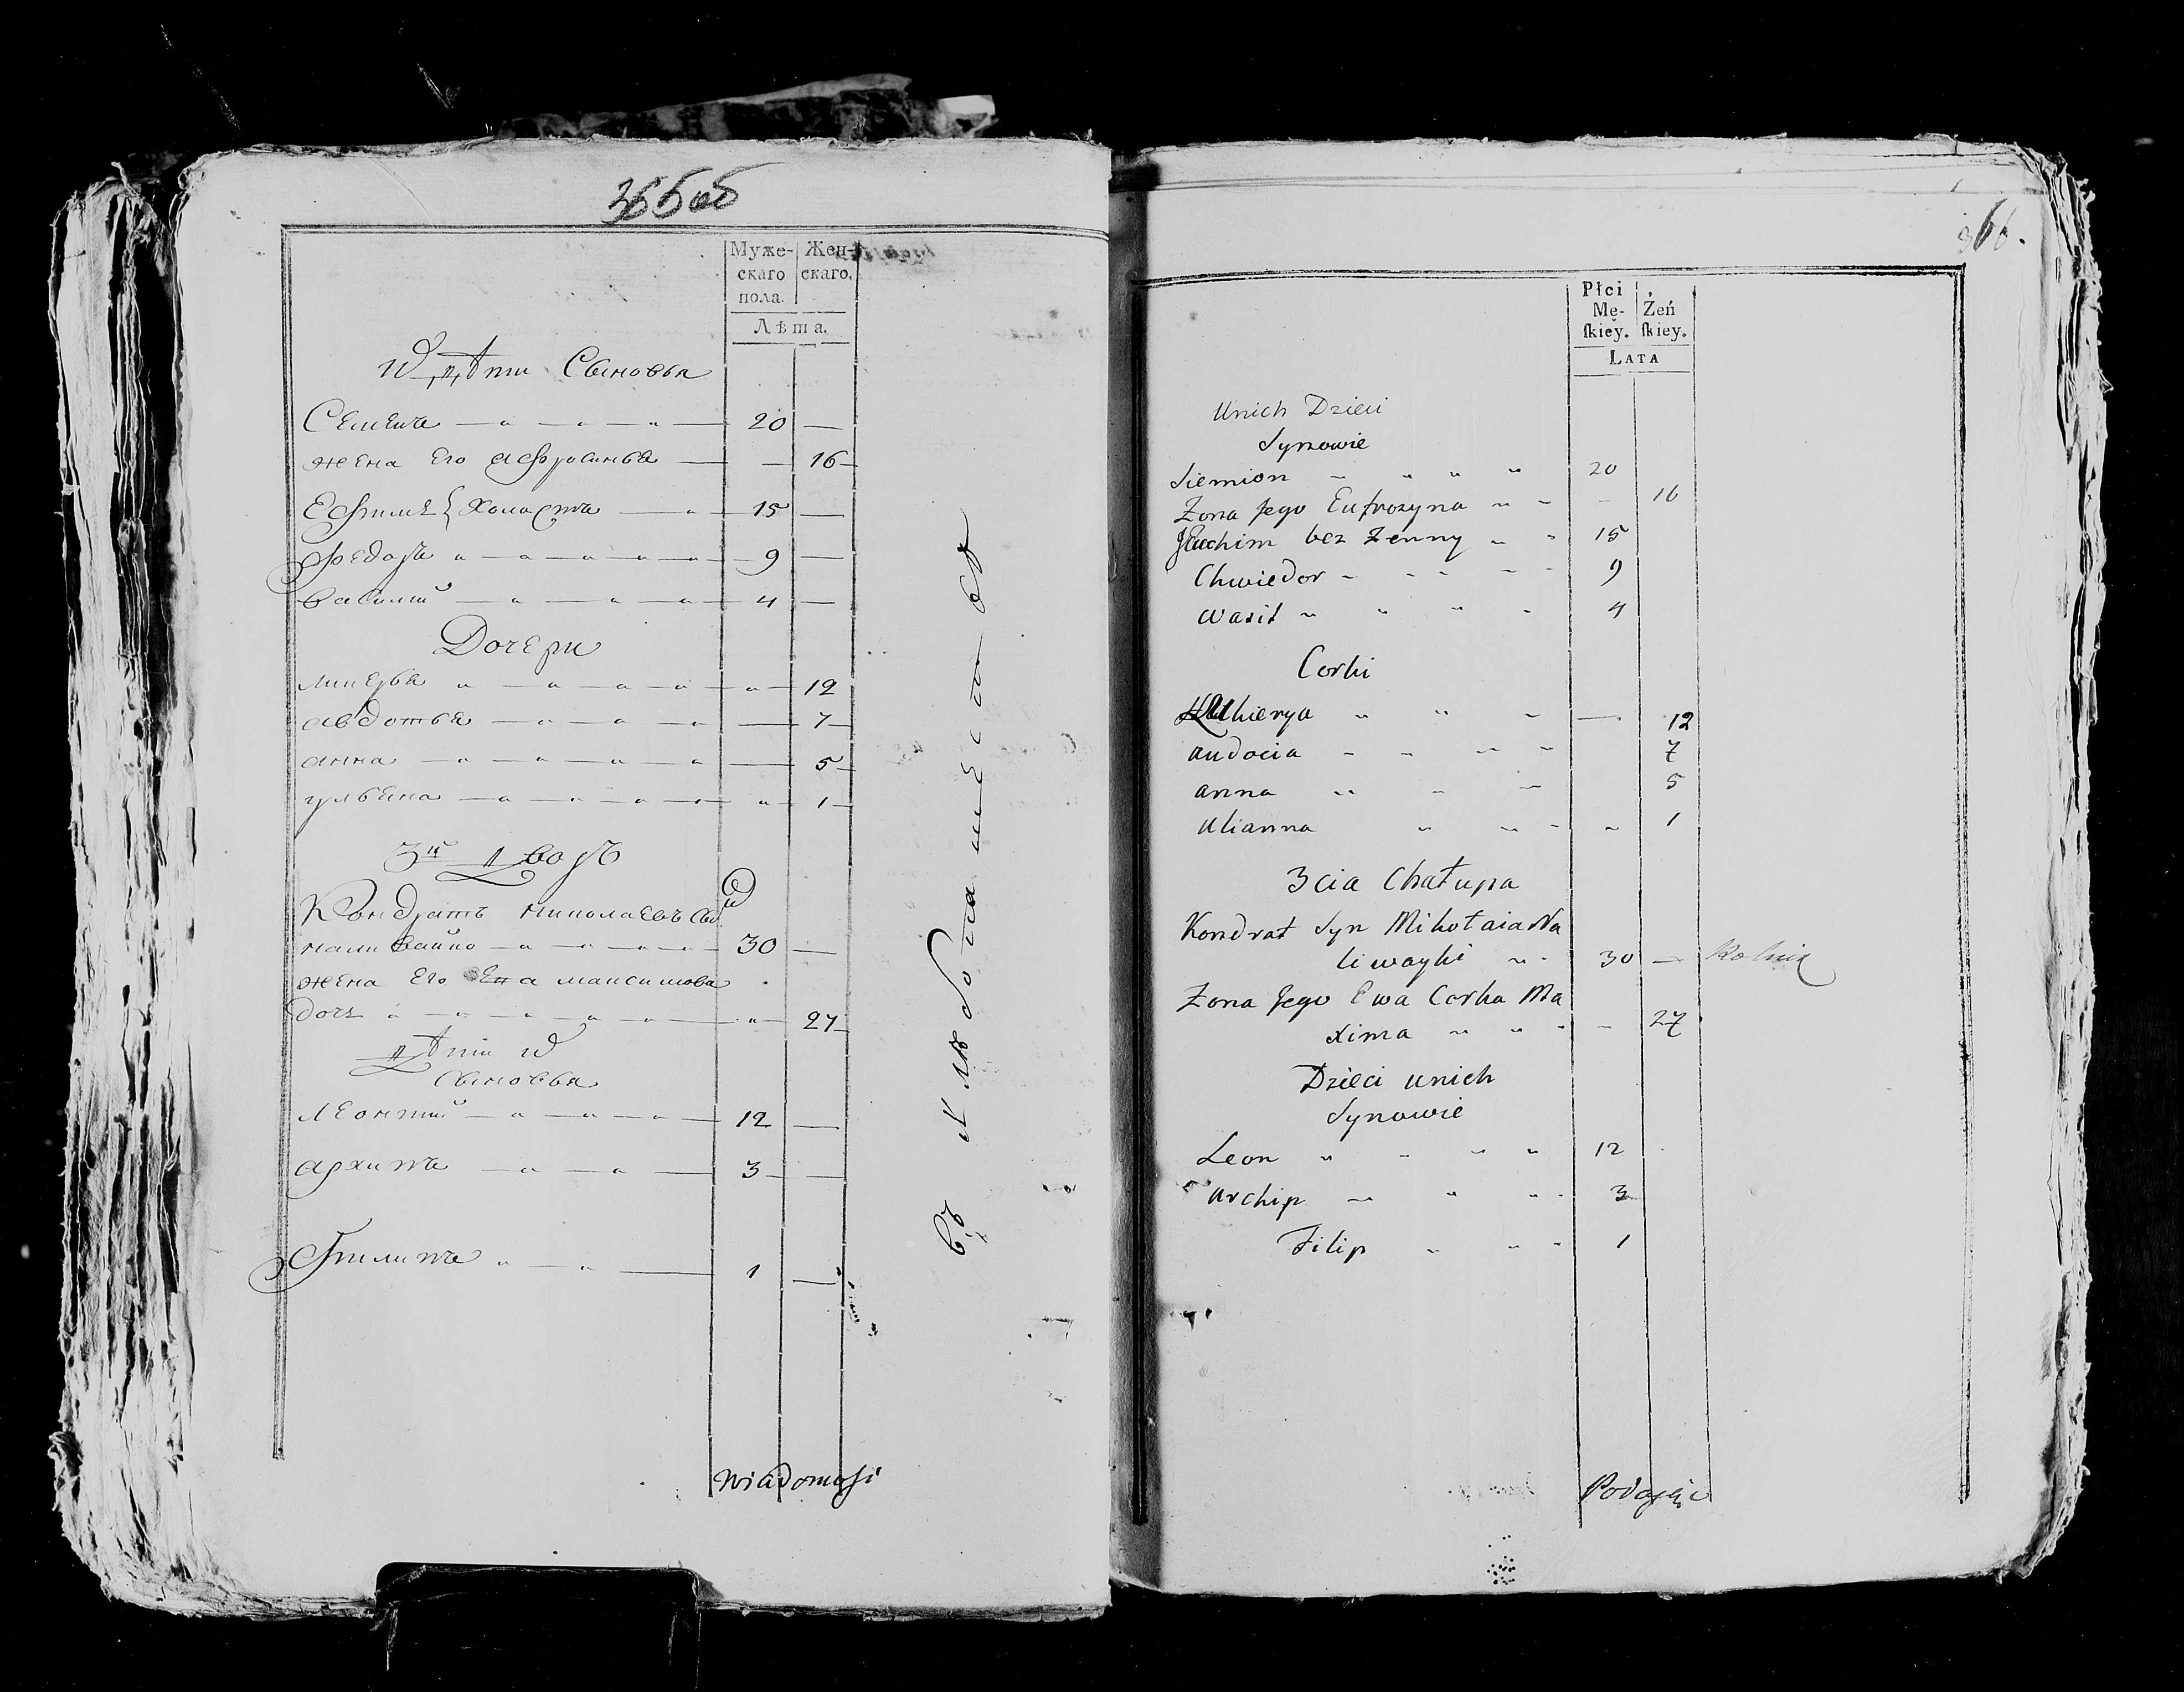 365 об
Муже-
скаго
пола.
Жен-
скаго.
Лѣта.
Дѣти Сыновья
Семенъ 20 —
жена Его афросинья — 16
Ефимъ холостъ 15 —
Федоръ 9 —
Василій 4 —
Дочери
12
авдотья 7
анна 5
ульяна 1
3й дворъ
Кондратъ николаевъ Сы
наливайко 30 —
жена Его Ева максимова
дочь 27
Дѣти
Сыновья
леонтій 12 —
архипъ 3 —
Филипъ 1 —
Wiadomość
366.
Płci
Mę-
ſkiey.
Żeń
ſkiey.
LATA
Unich Dzieci
Synowie
Siemion 20
Zona Jego Eufrozyna 16
bez Zenny 15
Chwiedor 9
Wasil 4
Corki
12
audocia 7
anna 5
Ulianna 1
3cia Chałupa
Kondrat Syn Mikołaia Na
liwayki 30 — Rolnik
Zona Jego Ewa Corka Ma
xima 27
Dzieci unich
Synowie
Leon 12
archip 3
Filip 1